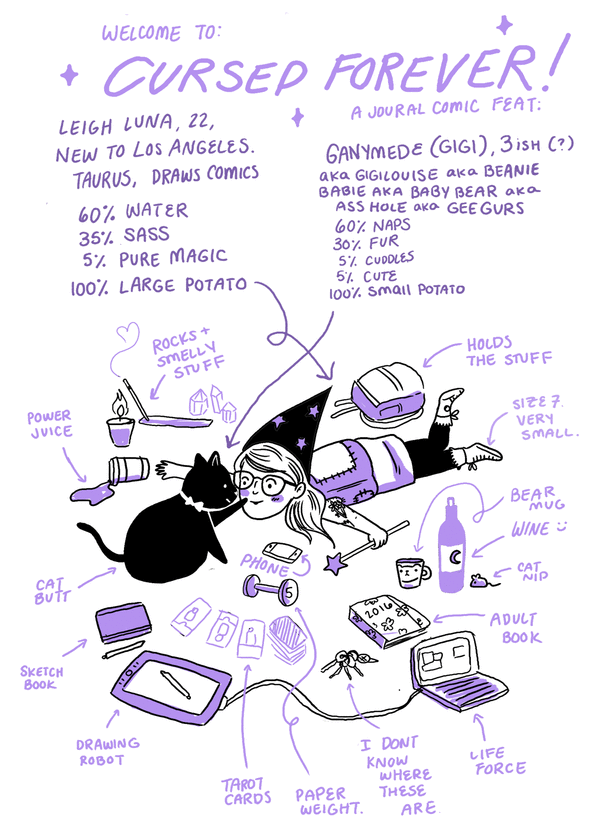 WELCOME TO:
CURSED FOREVER!
A JOURAL COMIC FEAT:
LEIGH LUNA, 22,
NEW TO LOS ANGELES.
TAURUS, DRAWS COMICS
60% WATER
35% SASS
5% PURE MAGIC
100% LARGE POTATO
GANYMEDE (GIGI), 3ISH (?)
aka GIGILOUISE aka BEANIE
BABIE AKA BABY BEAR aka
ASS HOLE aka GEEGURS
60% NAPS
30% FUR
5% CUDDLES
5% CUTE
100% Small POTATO
ROCKS +
SMELLY
STUFF
HOLDS
THE STUFF
POWER
JUICE
SIZE 7.
VERY
SMALL.
BEAR
MUG
WINE
CAT
NIP
PHONE
5
CAT
BUTT
2016
ADULT
BOOK
SKETCH
BOOK
DRAWING
ROBOT
TAROT
CARDS
PAPER
WEIGHT.
I DONT
KNOW
WHERE
THESE
ARE
LIFE
FORCE